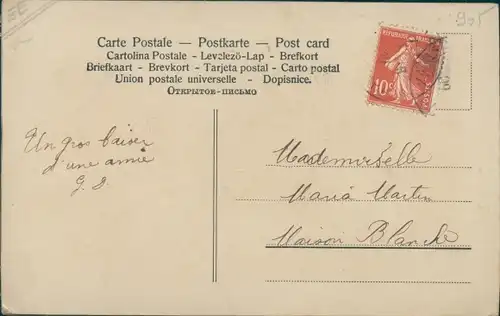 Carte Postale — Postkarte — Post card
Cartolina Postale - Levelező-Lap - Brefkort
Briefkaart - Brevkort - Tarjeta postal - Carto postal
Union postale universelle - Dopisnice.
Открытов-письмо
REPUBLIQUE FRANÇAISE
10c
POSTES
Un gros baiser
d'une amie
G. D.
Mademoiselle
Maria Martin
Maison Blanche